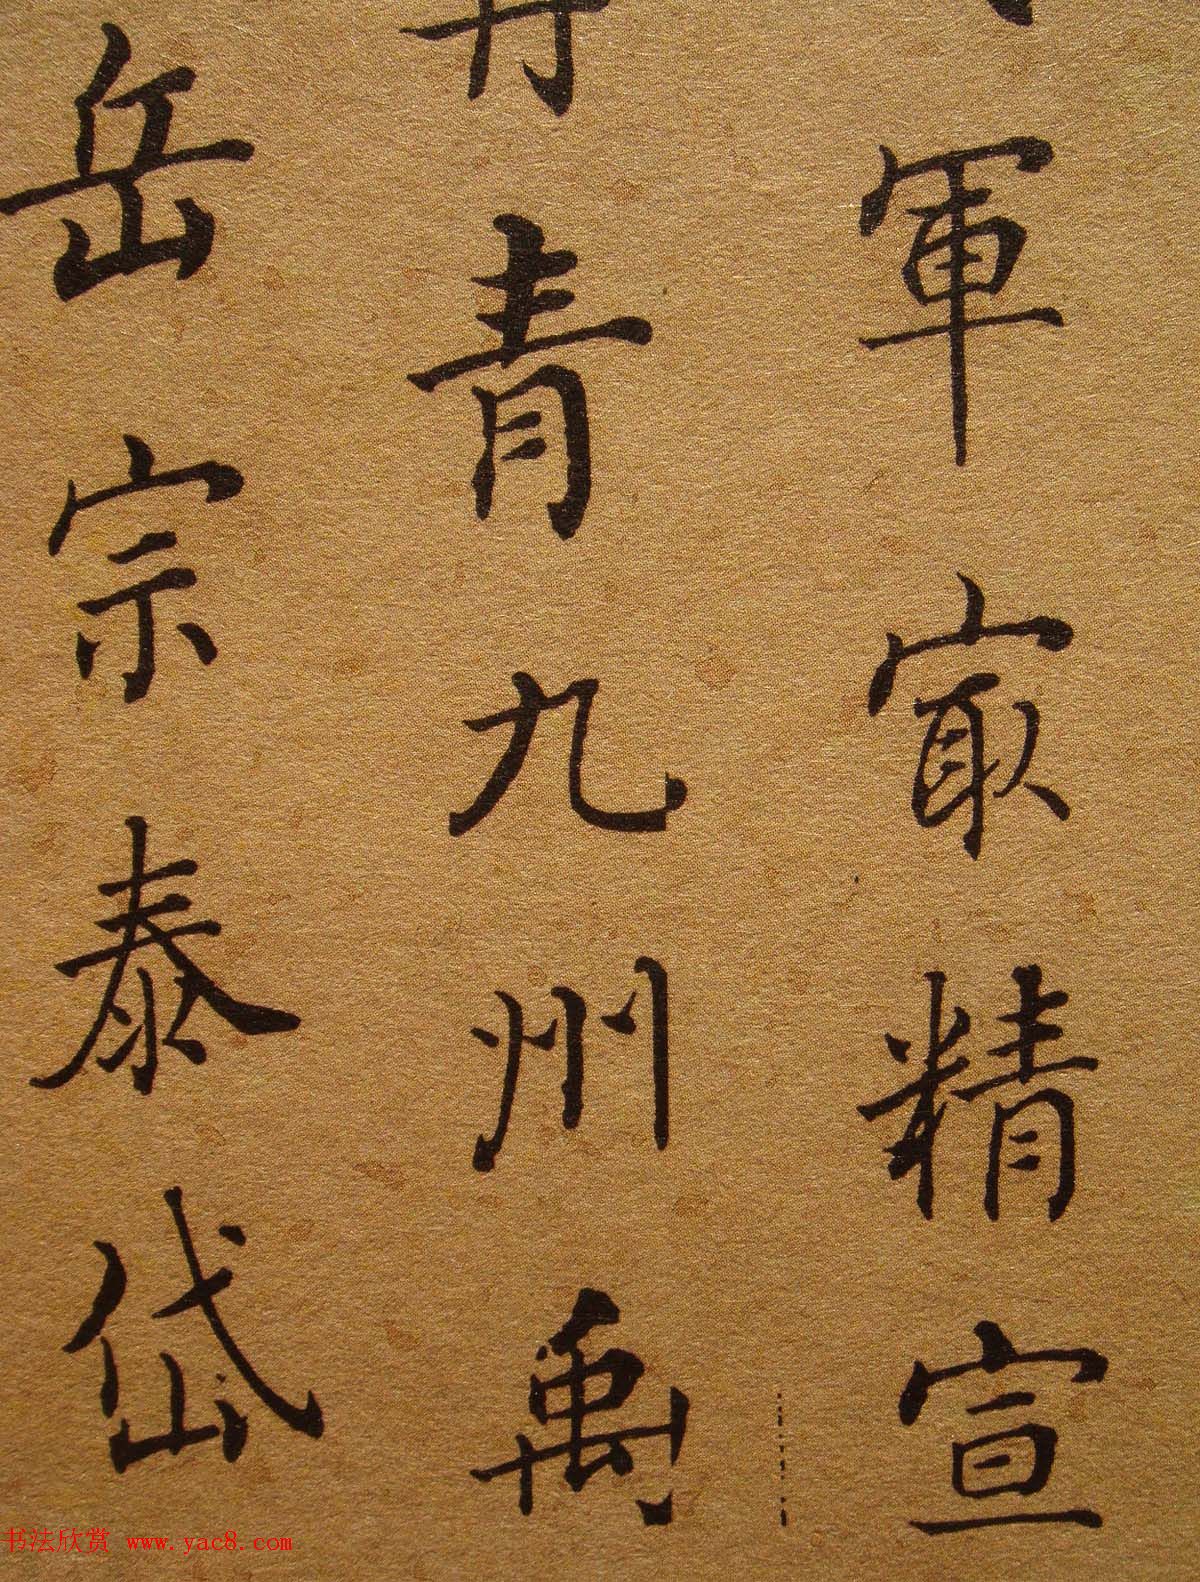 軍冣精宣
丹青九州禹
岳宗泰岱
书法欣赏 www.yac8.com